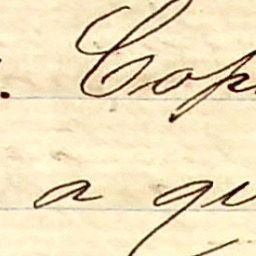 . Cop
a qu